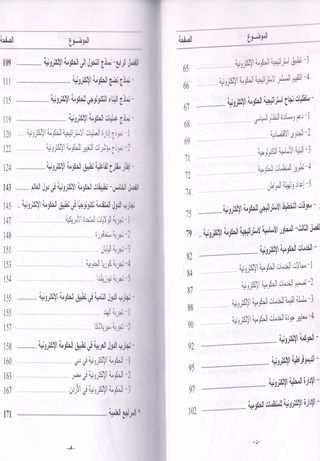 الموضوع الصفحة
3- تطبيق استراتيجية الحكومة الإلكترونية 65
4- التقييم المستمر لاستراتيجية الحكومة الإلكترونية 66
- متطلبات نجاح استراتيجية الحكومة الإلكترونية 67
1- دعم ومساندة النظام السياسي 68
2- الجدوى الاقتصادية 69
3- البنية الأساسية التكنولوجية 71
4- تطوير المنظمات الحكومية 72
5- إعداد وتهيئة المواطن 74
- معوقات التخطيط الاستراتيجي للحكومة الإلكترونية 75
الفصل الثالث- المحاور الأساسية لاستراتيجية الحكومة الإلكترونية 79
- الخدمات الحكومية الإلكترونية 81
1- مجالات الخدمات الحكومية الإلكترونية
2- تصميم الخدمات الحكومية الإلكترونية
3- سلسلة القيمة للخدمات الحكومية الإلكترونية 88
4- معايير جودة الخدمات الحكومية الإلكترونية 90
- الحوكمة الإلكترونية 92
- الديموقراطية الإلكترونية 95
- الإدارة المحلية الإلكترونية 97
- الإدارة الإلكترونية للمنظمات الحكومية 102
الموضوع الصفحة
الفصل الرابع- نماذج التحول إلى الحكومة الإلكترونية 109
- نماذج نضج الحكومة الإلكترونية 111
- نماذج البناء التكنولوجي للحكومة الإلكترونية 115
- نماذج عمليات الحكومة الإلكترونية 119
1- نموذج إدارة العمليات الاستراتيجية للحكومة الإلكترونية 120
2- نموذج مؤشرات التغيير للحكومة الإلكترونية 122
- إطار مقترح لفاعلية تطبيق الحكومة الإلكترونية 124
الفصل الخامس- تطبيقات الحكومة الإلكترونية في دول العالم 143
- تجارب الدول المتقدمة تكنولوجيا في تطبيق الحكومة الإلكترونية 145
1- تجربة الولايات المتحدة الأمريكية 147
2- تجربة سنغافورة 148
3- تجربة اليابان 151
4- تجربة كوريا الجنوبية 153
5- تجربة نيوزيلندا 154
- تجارب الدول النامية في تطبيق الحكومة الإلكترونية 155
1- تجربة الهند 155
2- تجربة سيريلانكا 157
- تجارب الدول العربية في تطبيق الحكومة الإلكترونية 158
1- الحكومة الإلكترونية في دبي 160
2- الحكومة الإلكترونية في مصر 163
3- الحكومة الإلكترونية في الأردن 167
* المراجع العلمية 171